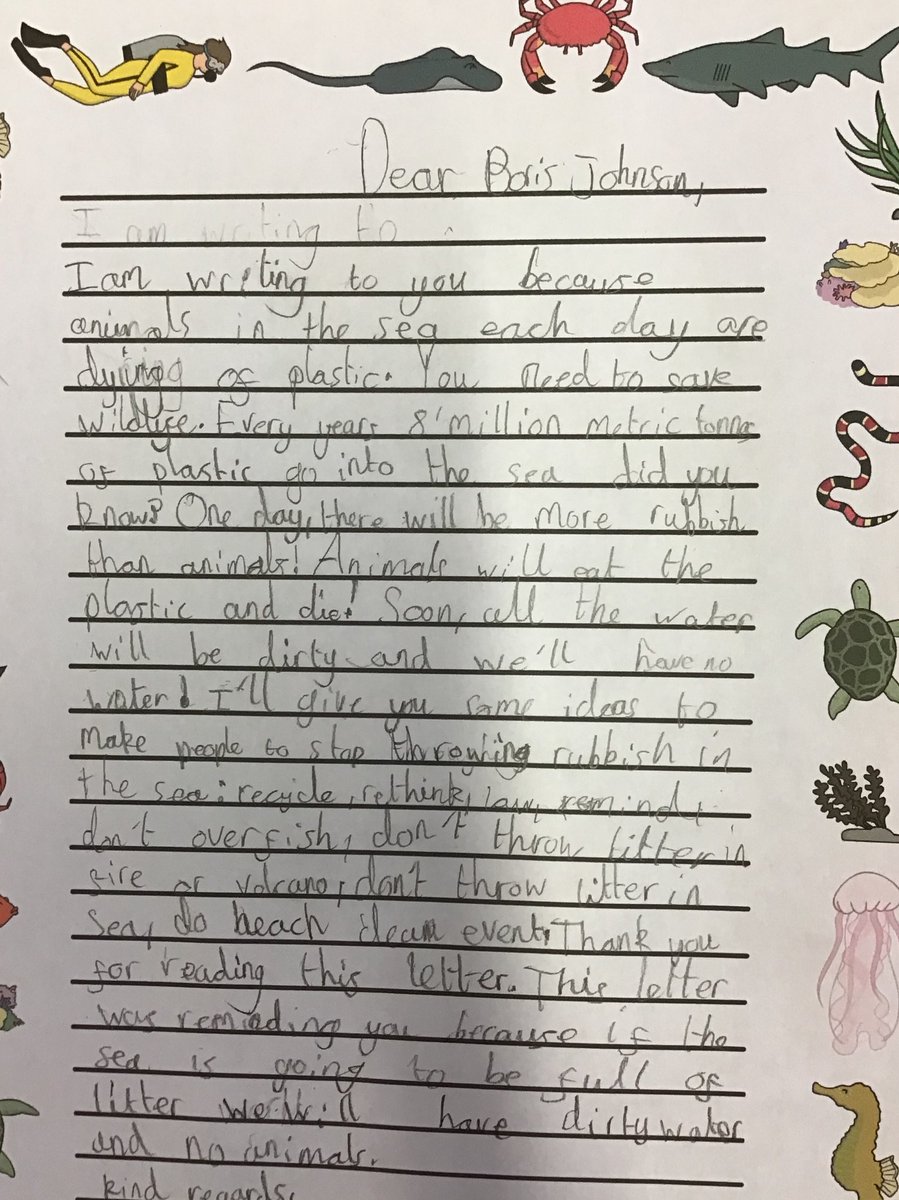 Dear Boris Johnson,
I am writing to
I am writing to you because
animals in the sea each day are
dying of plastic. You need to save
wildlife. Every years 8 million metric tonnes
of plastic go into the sea did you
know? One day, there will be more rubbish
than animals! Animals will eat the
plastic and die! Soon, all the water
will be dirty and we'll have no
water! I'll give you some ideas to
make people to stop throwing rubbish in
the sea: recycle, rethink, law, remind,
don't overfish, don't throw litter in
fire or volcano, don't throw litter in
sea, do beach clean event. Thank you
for reading this letter. This letter
was reminding you because if the
sea is going to be full of
litter we'll have dirty water
and no animals.
kind regards,